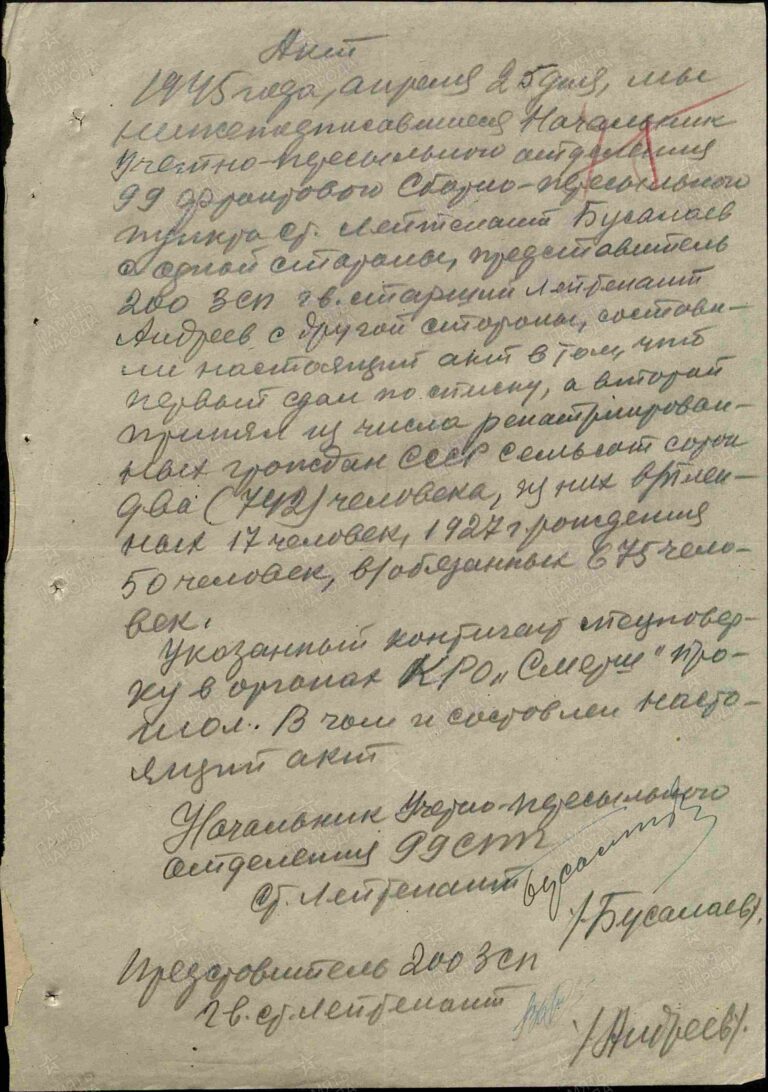 Акт
1945 года, апреля 25 дня, мы
нижеподписавшиеся Начальник
Учетно-пересыльного отделения
99 фронтового Сборно-пересыльного
пункта ст. Лейтенант Бусалаев
с одной стороны, представитель
200 ЗСП гв. старший Лейтенант
Андреев с другой стороны, состави-
ли настоящий акт в том, что
первый сдал по списку, а второй
принял из числа репатрииrован-
ных граждан СССР семьсот сорок
два (742) человека, из них в/плен-
ных 17 человек, 1927 г рождения
50 человек, в/обязанных 675 чело-
век.
Указанный контингент спецповер-
ку в органах КРО „Смерш" про-
шол. В чем и составлен насто-
ящий акт
Начальник Учетно-пересыльного
отделения 99 СПП
Ст. Лейтенант
/Бусалаев/.
Представитель 200 ЗСП
гв. ст Лейтенант
/Андреев/.
ПАМЯТЬ НАРОДА